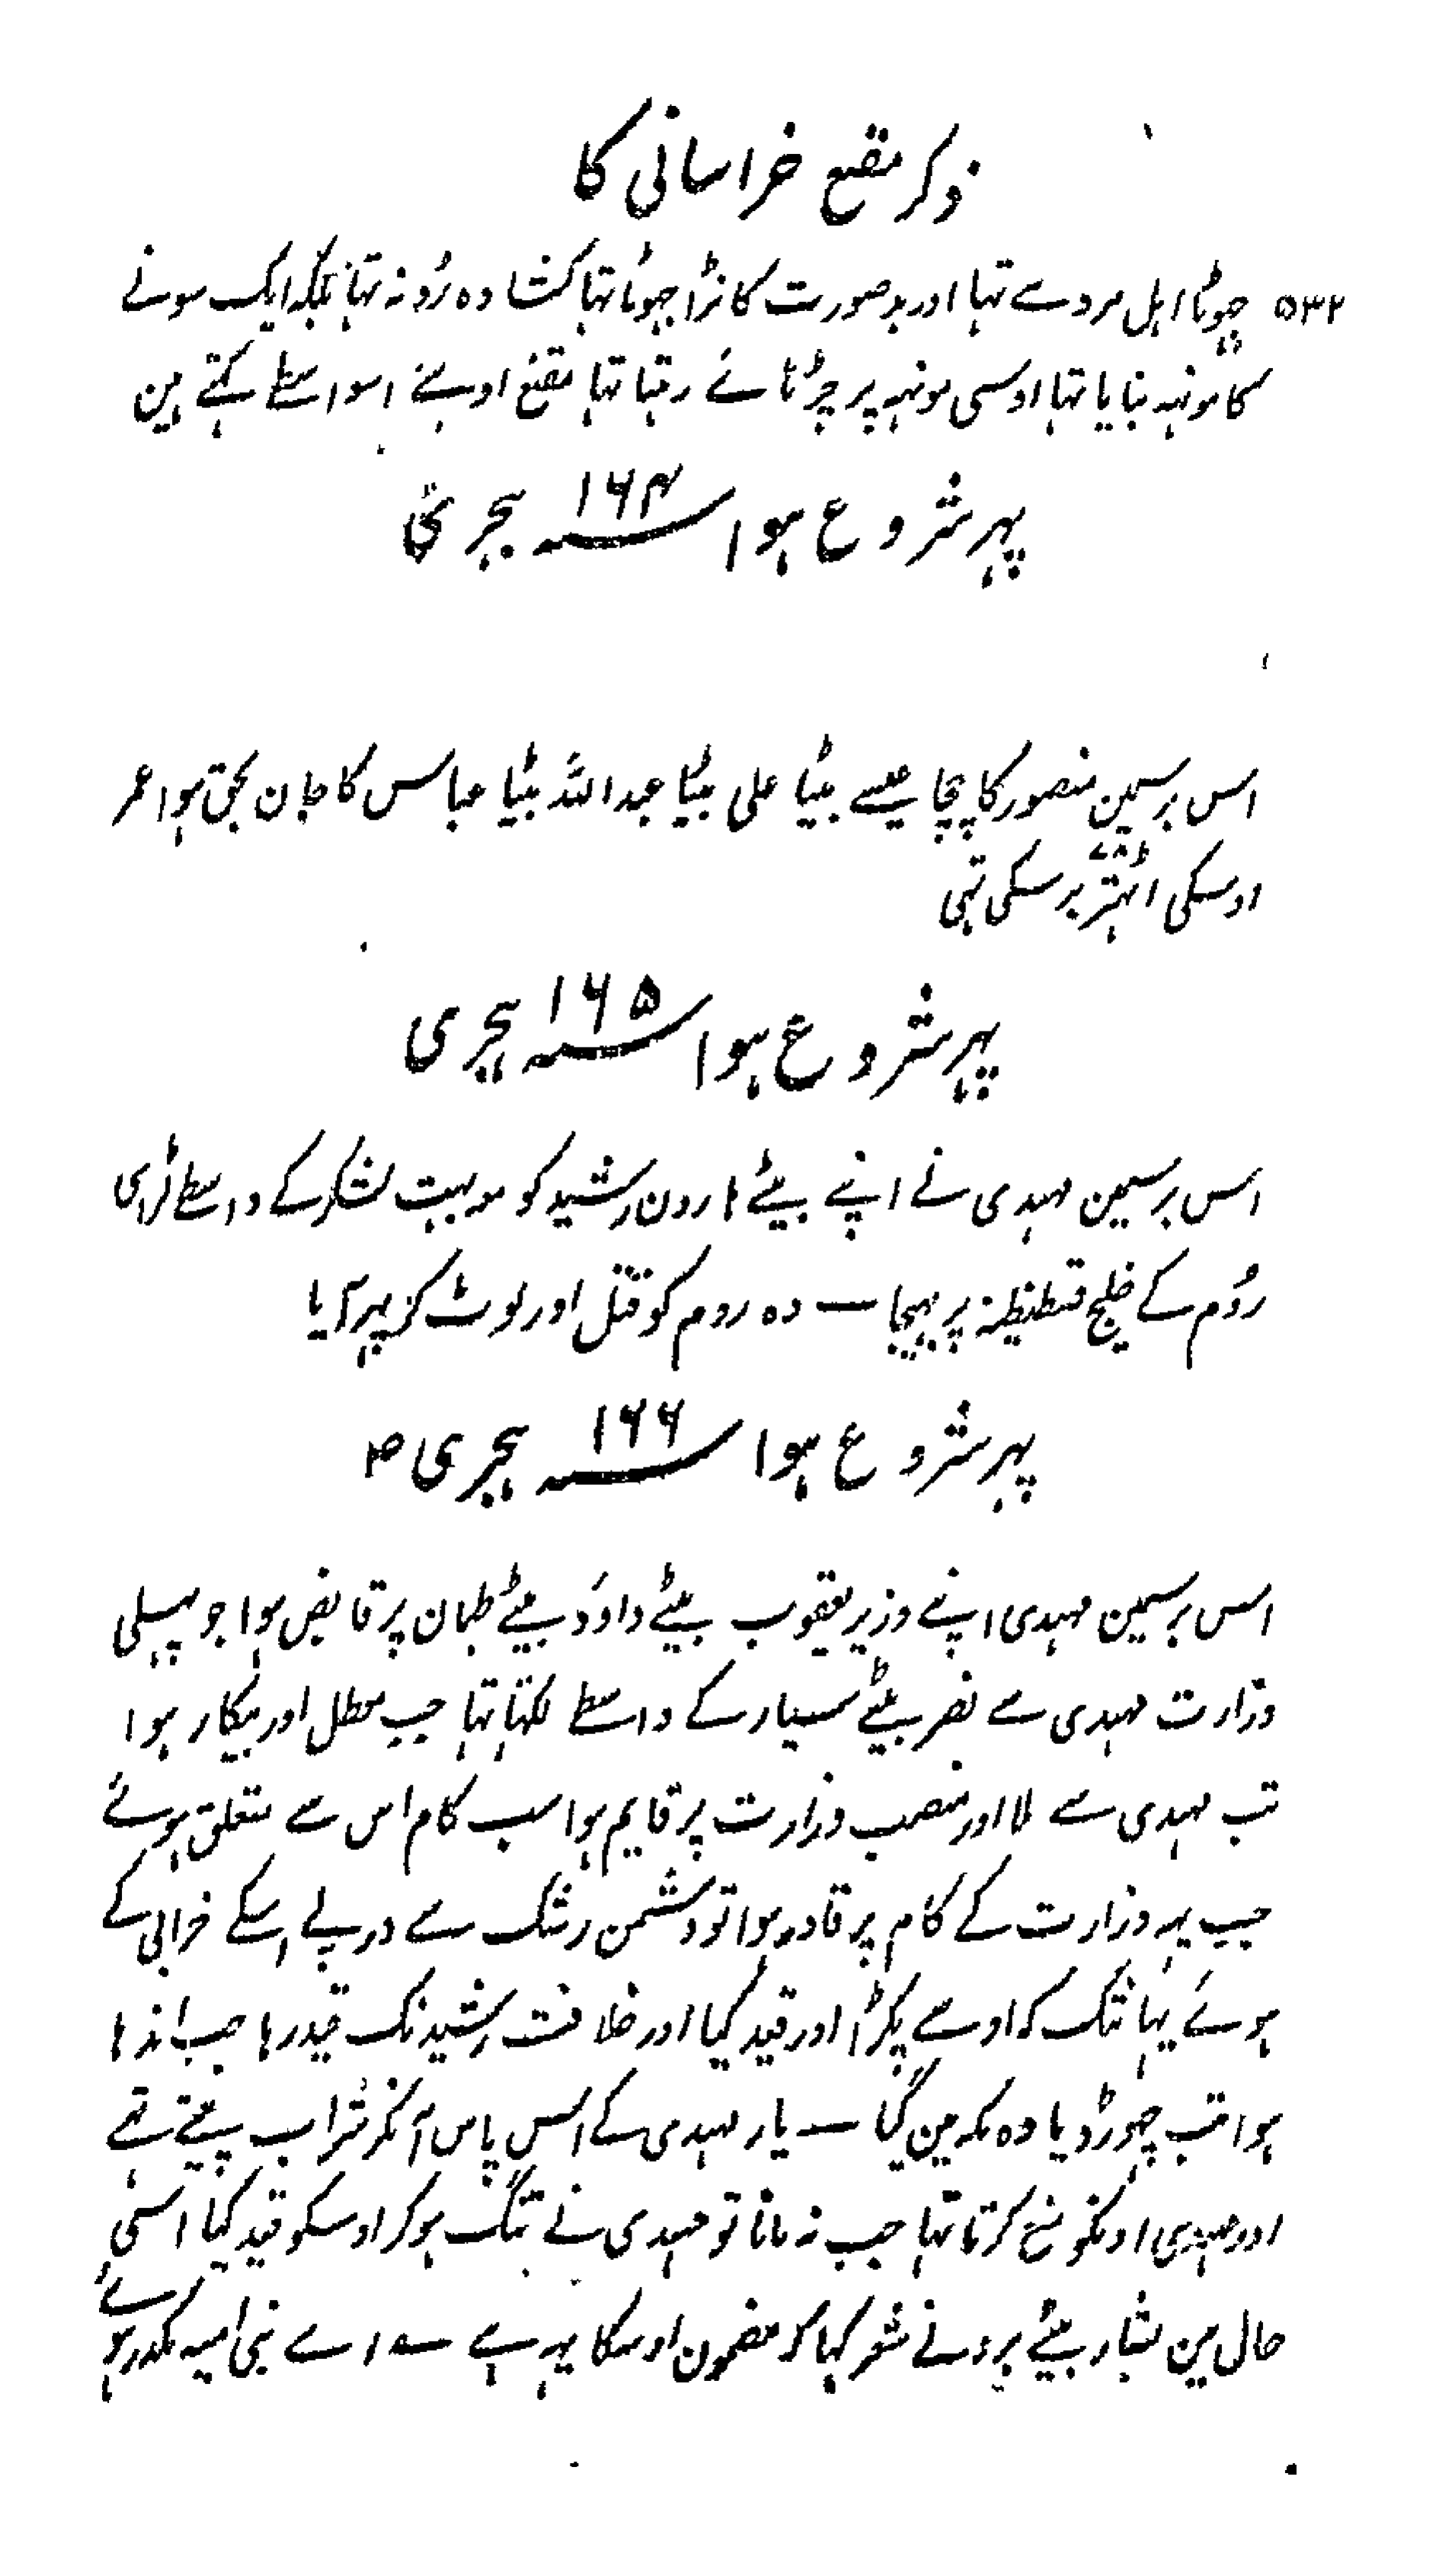 ذکر مقنع خراسانی کا
۵۳۲ چھوٹا اہل مرو سے تہا اور بدصورت کانڑا جھوٹا تہا کشادہ رُو نہ تہا بلکہ ایک سونے
کا مونہہ بنایا تہا اوسی مونہہ پر چڑٹائے رہتا تہا مقنع اوسے اسواسطے کہتے ہین
پہر شروع ہوا سنہ ۱۶۴ ہجری
اس برسمین منصور کا چچا عیسے بیٹا علی بیٹا عبد اللہ بیٹا عباس کا جان بحق ہوا عمر
اوسکی اٹہتر ۷۸ برسکی تہی
پہر شروع ہوا سنہ ۱۶۵ ہجری
اس برسمین مہدی نے اپنے بیٹے ہارون رشید کو مع بہت لشکر کے واسطے لڑای
رُوم کے خلیج قسطنطنہ پر بہیجا ــ وہ روم کو قتل اور لوٹ کر پہر آیا
پہر شروع ہوا سنہ ۱۶۶ ہجری
اس برسمین مہدی اپنے وزیر یعقوب بیٹے داؤد بیٹے طہمان پر قابض ہوا جو پہلی
وزارت مہدی سے نصر بیٹے سیار کے واسطے لکہتا تہا جب معطل اور بیکار ہوا
تب مہدی سے ملا اور منصب وزارت پر قایم ہوا سب کام اس سے متعلق ہوئے
جب یہہ وزارت کے کام پر قادر ہوا تو دشمن رشک سے درپے اسکے خرابی کے
ہوئے یہانتک کہ اوسے پکڑا اور قید کیا اور خلافت رشید تک قید رہا جب اندہا
ہوا تب چہوڑ دیا وہ مکہ مین گیا ــ یار مہدی کے اس پاس آنکر شراب پیتے تہے
اور مہدی اونکو منع کرتا تہا جب نہ مانا تو مہدی نے تنگ ہو کر اوسکو قید کیا اسی
حال مین بشار بیٹے برد نے شعر کہا کہ مضمون اوسکا یہہ ہے ــ اے بنی امیہ مکدر ہوئے